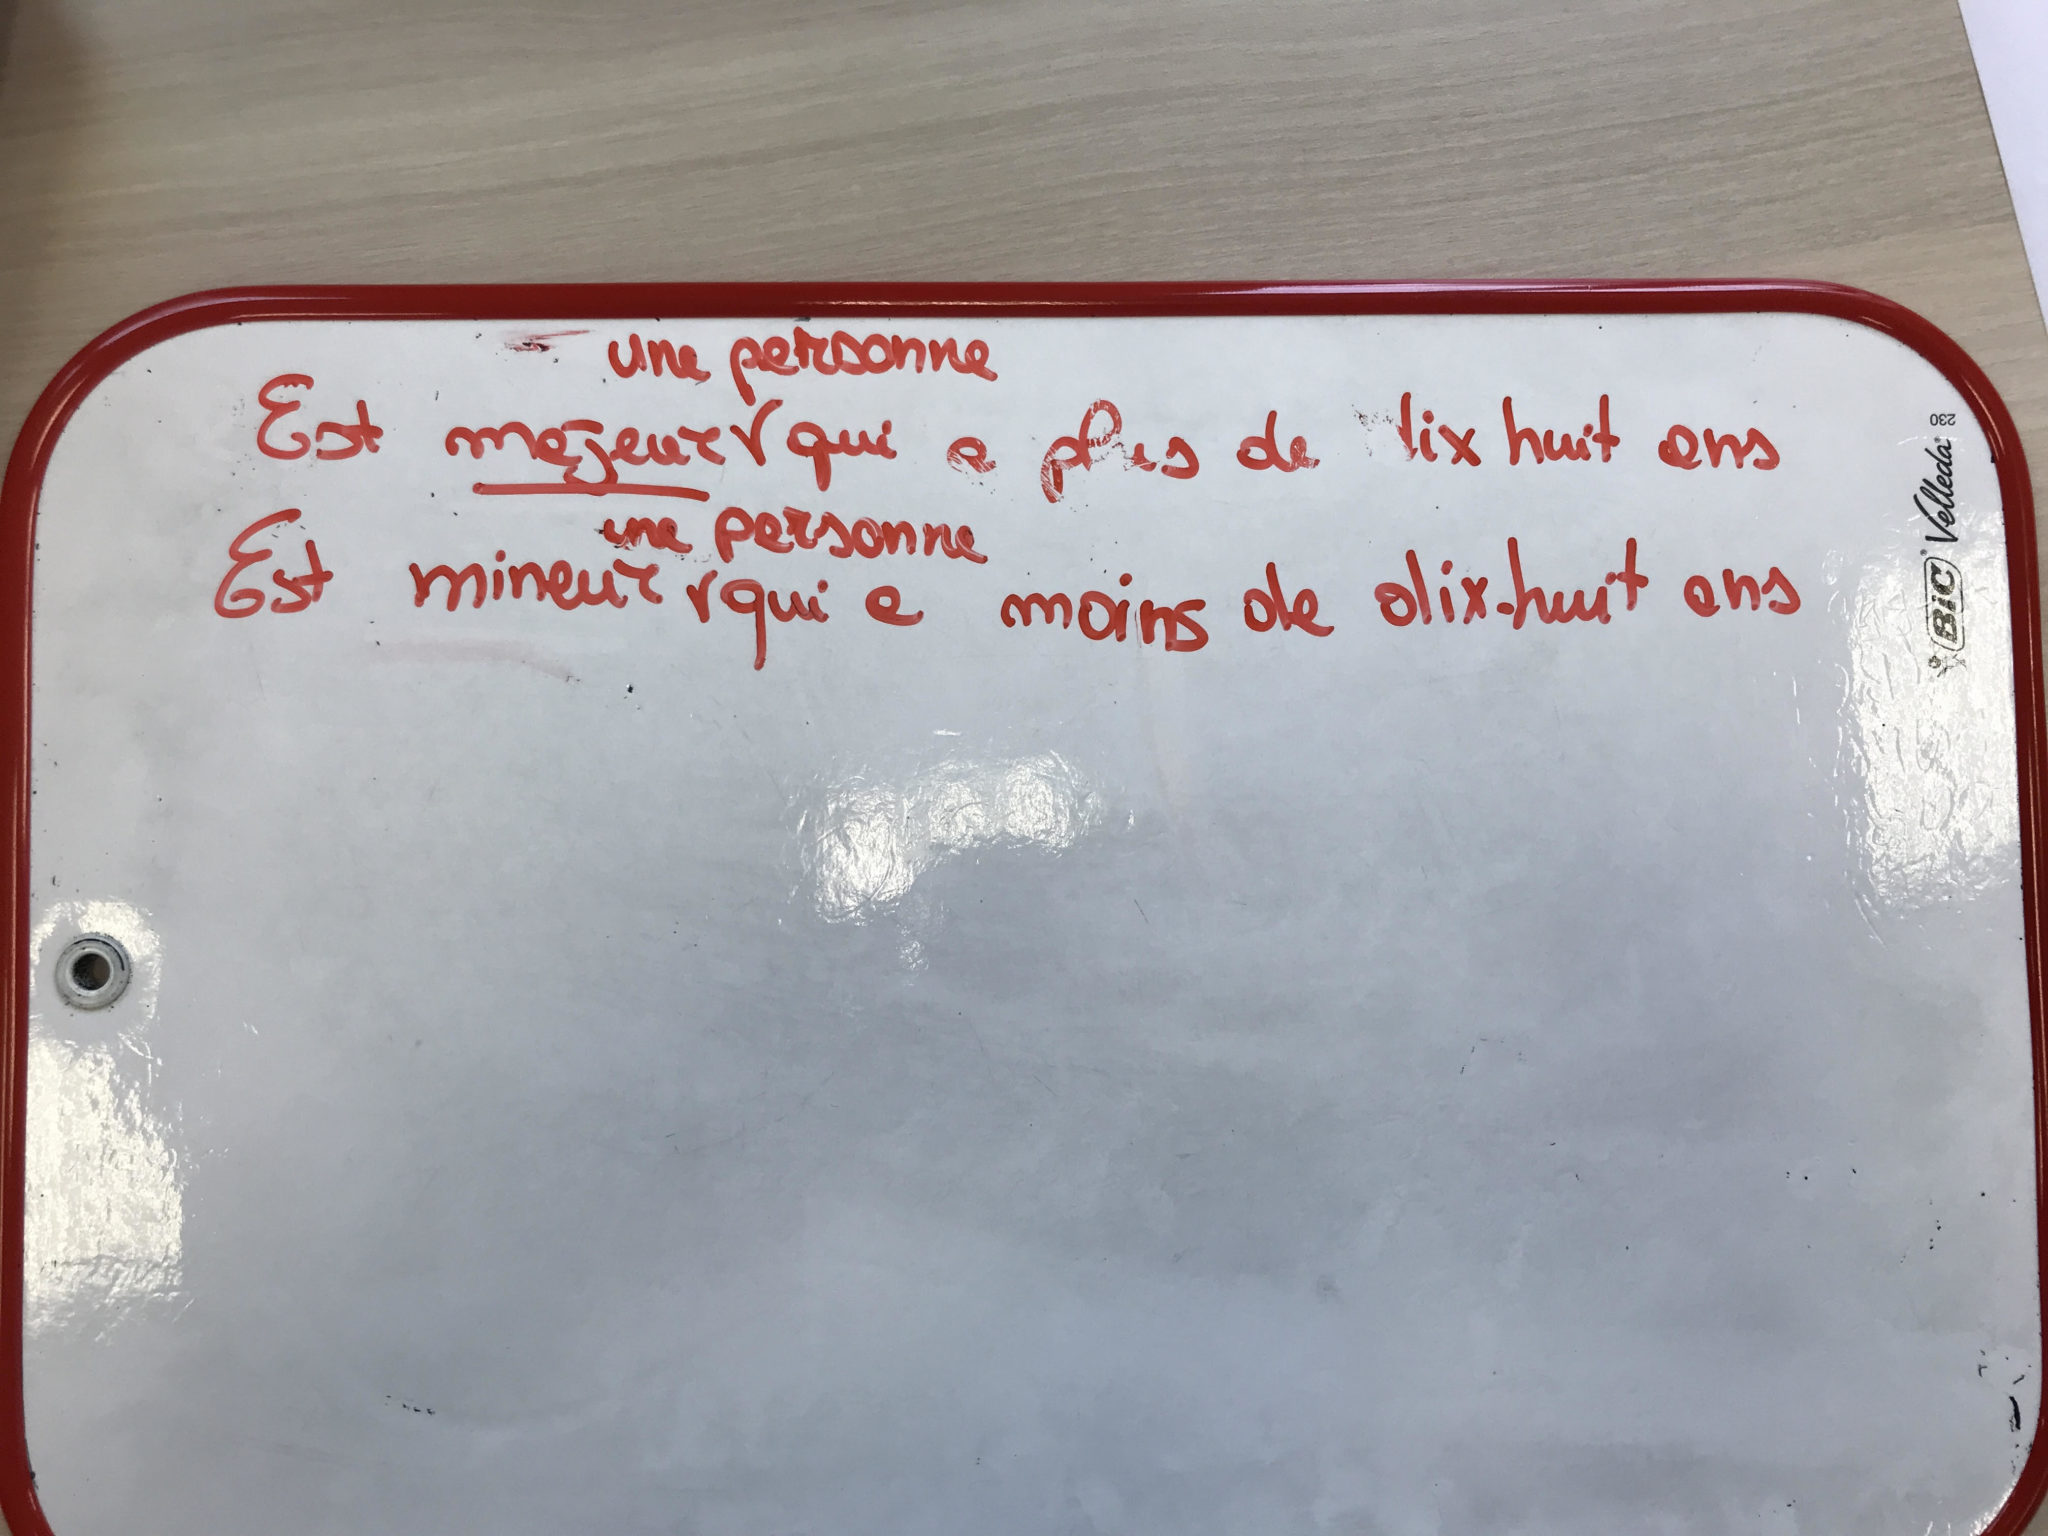 une personne
Est majeur qui a plus de dix huit ans
une personne
Est mineur qui a moins de dix-huit ans
230
BIC Velleda